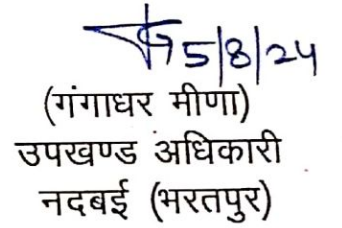 5/8/24
(गंगाधर मीणा)
उपखण्ड अधिकारी
नदबई (भरतपुर)